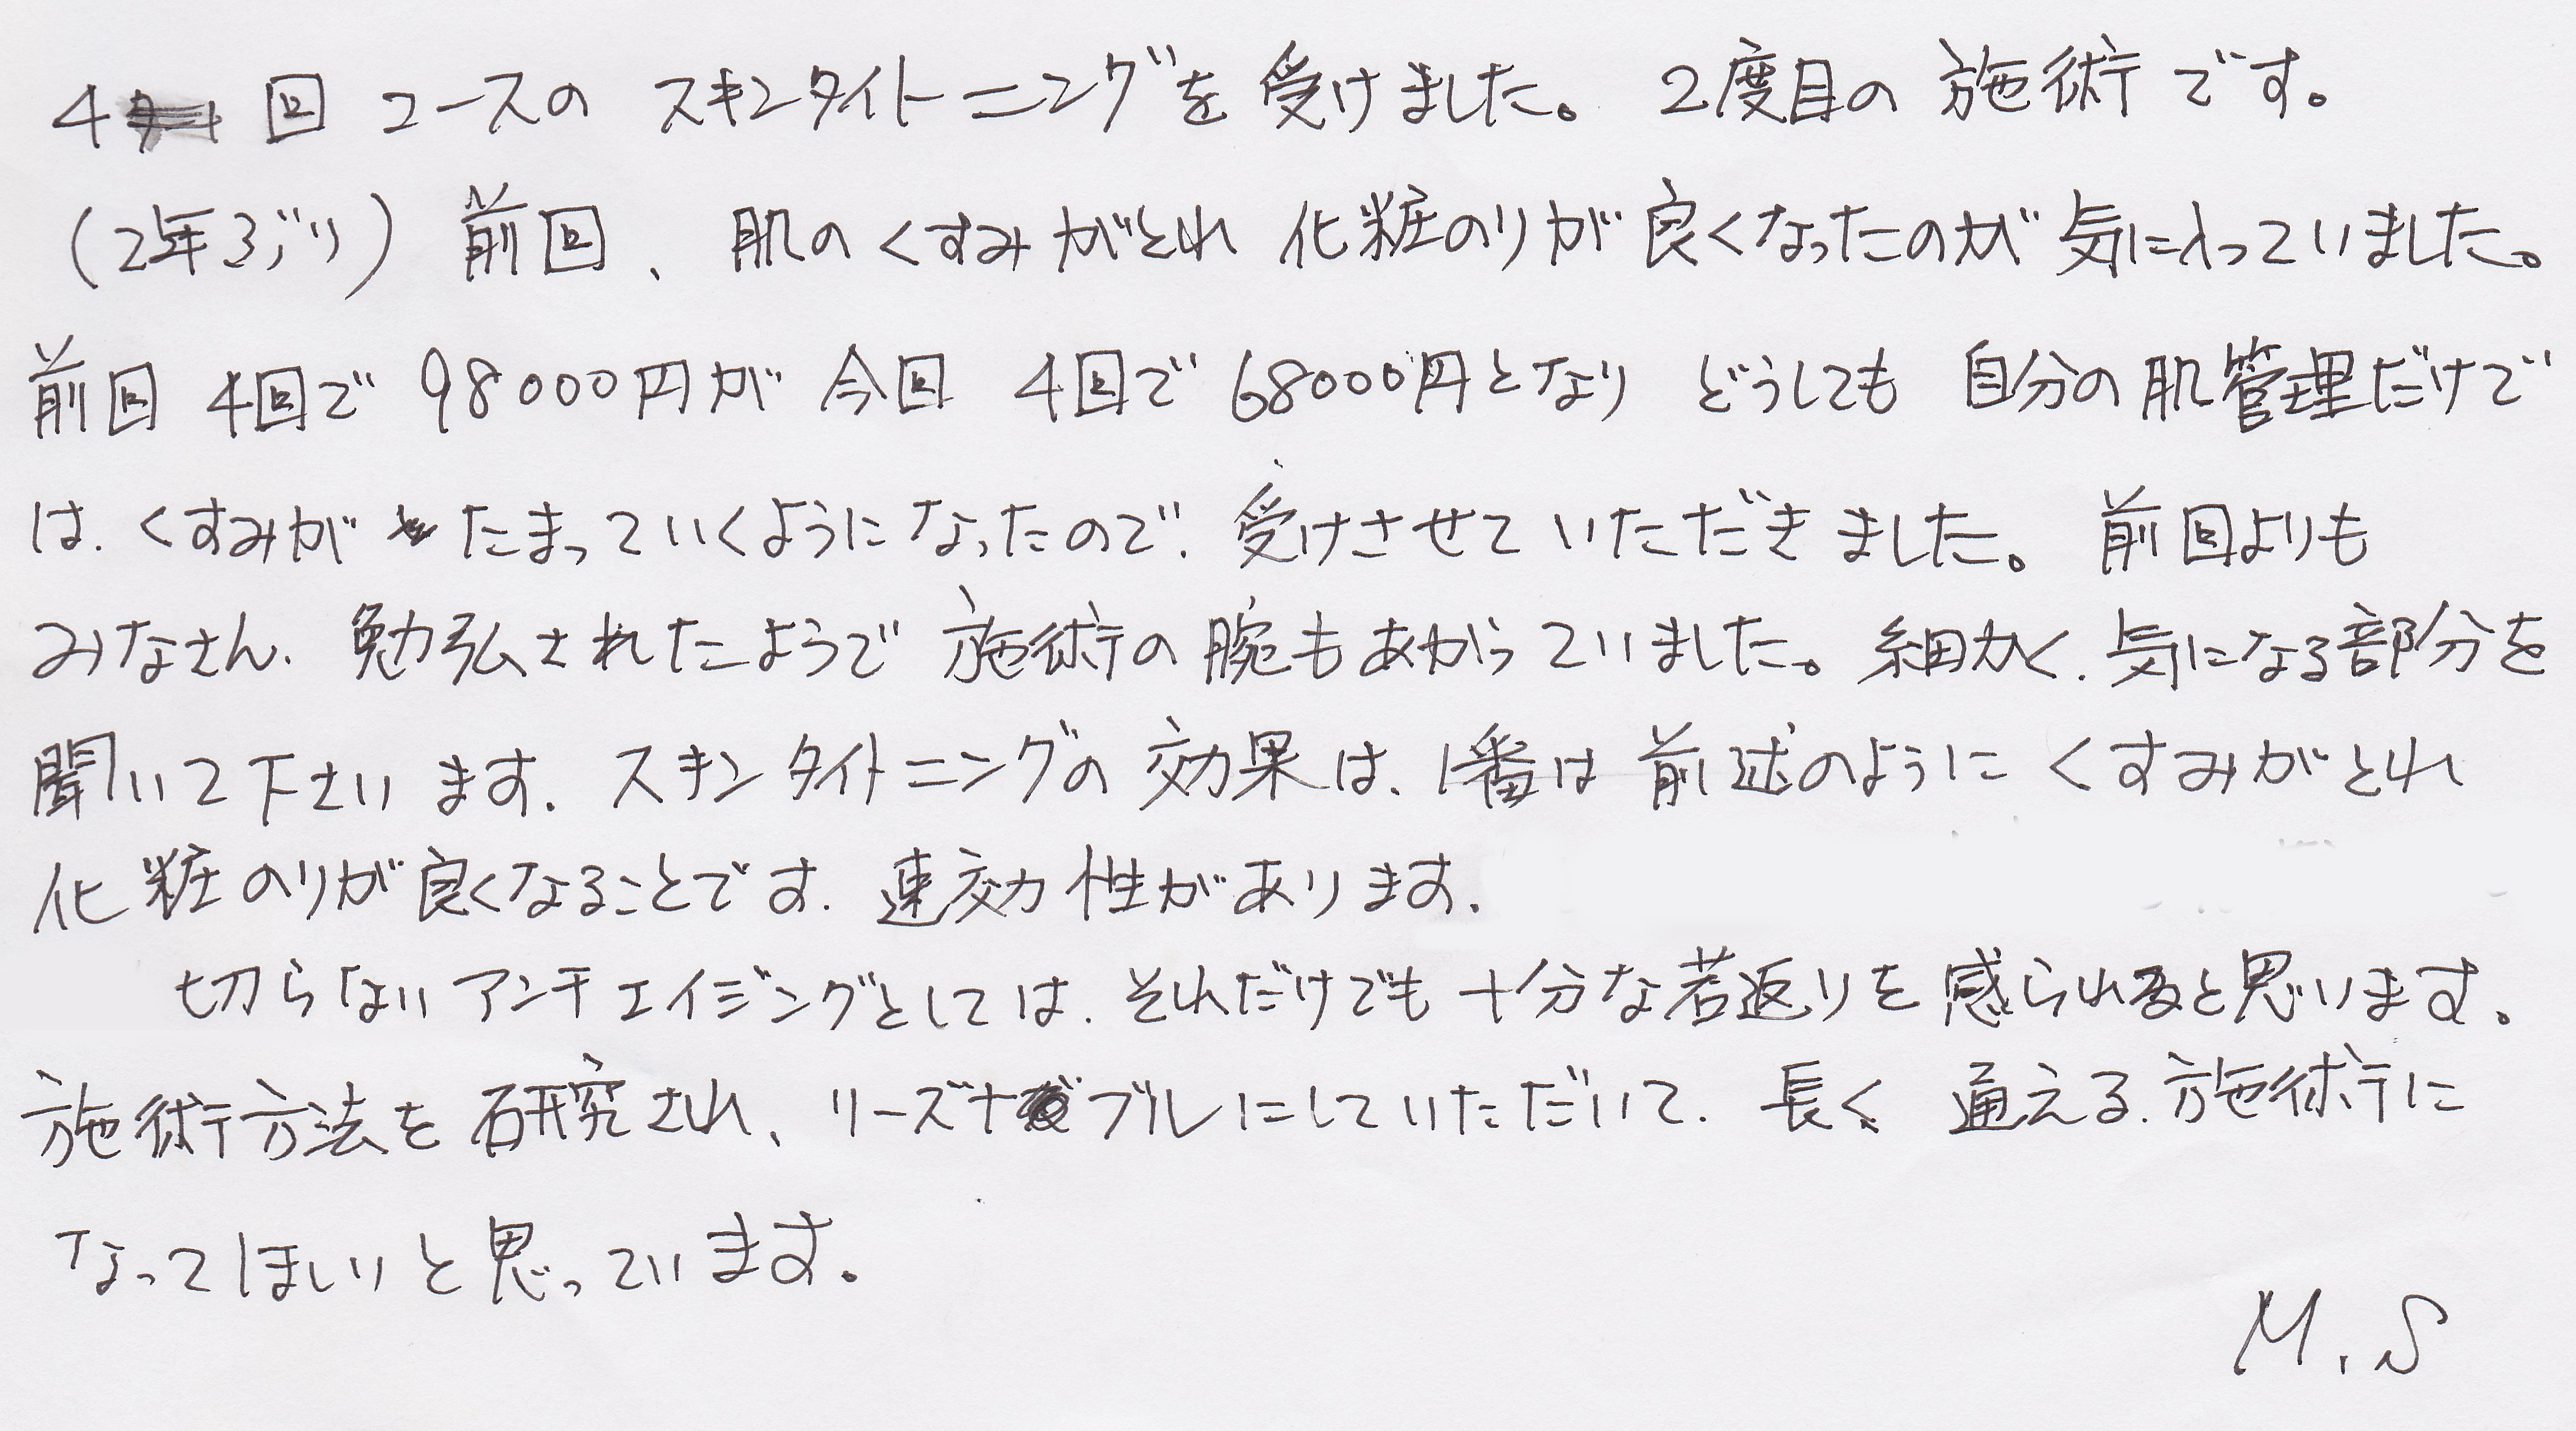 4回コースの スキンタイトニングを 受けました。 2度目の 施術です。
(2年ぶり) 前回、 肌のくすみがとれ 化粧のりが良くなったのが 気に入っていました。
前回 4回で 98000円が 今回 4回で 68000円となり どうしても 自分の肌管理だけで
は、くすみが たまっていくようになったので、受けさせていただきました。 前回よりも
みなさん、勉強されたようで 施術の腕もあがっていました。細かく、気になる部分を
聞いて下さいます。スキンタイトニングの 効果は、1番は 前述のように くすみがとれ
化粧のりが良くなることです。速効性があります。
切らないアンチエイジングとしては、それだけでも 十分な若返りを 感られると思います。
施術方法を 研究され、リーズナブルにしていただいて、長く 通える、施術に
なってほしいと思っています。
M.S